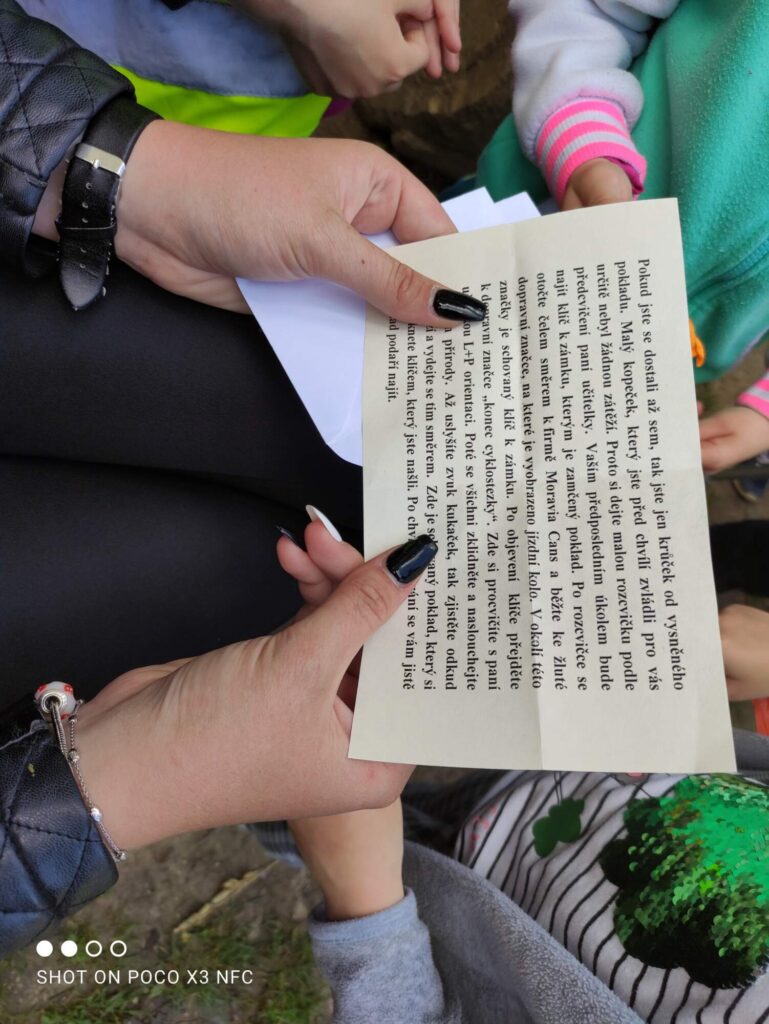 Pokud jste se dostali až sem, tak jste jen krůček od vysněného
pokladu. Malý kopeček, který jste před chvílí zvládli pro vás
určitě nebyl žádnou zátěží. Proto si dejte malou rozcvičku podle
předevičení paní učitelky. Vaším předposledním úkolem bude
najít klíč k zámku, kterým je zamčený poklad. Po rozcvičce se
otočte čelem směrem k firmě Moravia Cans a běžte ke žluté
dopravní značce, na které je vyobrazeno jízdní kolo. V okolí této
značky je schovaný klíč k zámku. Po objevení klíče přejděte
k dopravní značce „konec cyklostezky“. Zde si procvičíte s paní
L+P orientaci. Poté se všichni zklidněte a naslouchejte
přírody. Až uslyšíte zvuk kukaček, tak zjistěte odkud
a vydejte se tím směrem. Zde je poklad, který si
klíčem, který jste našli. Po se vám jistě
podaří najít.
SHOT ON POCO X3 NFC